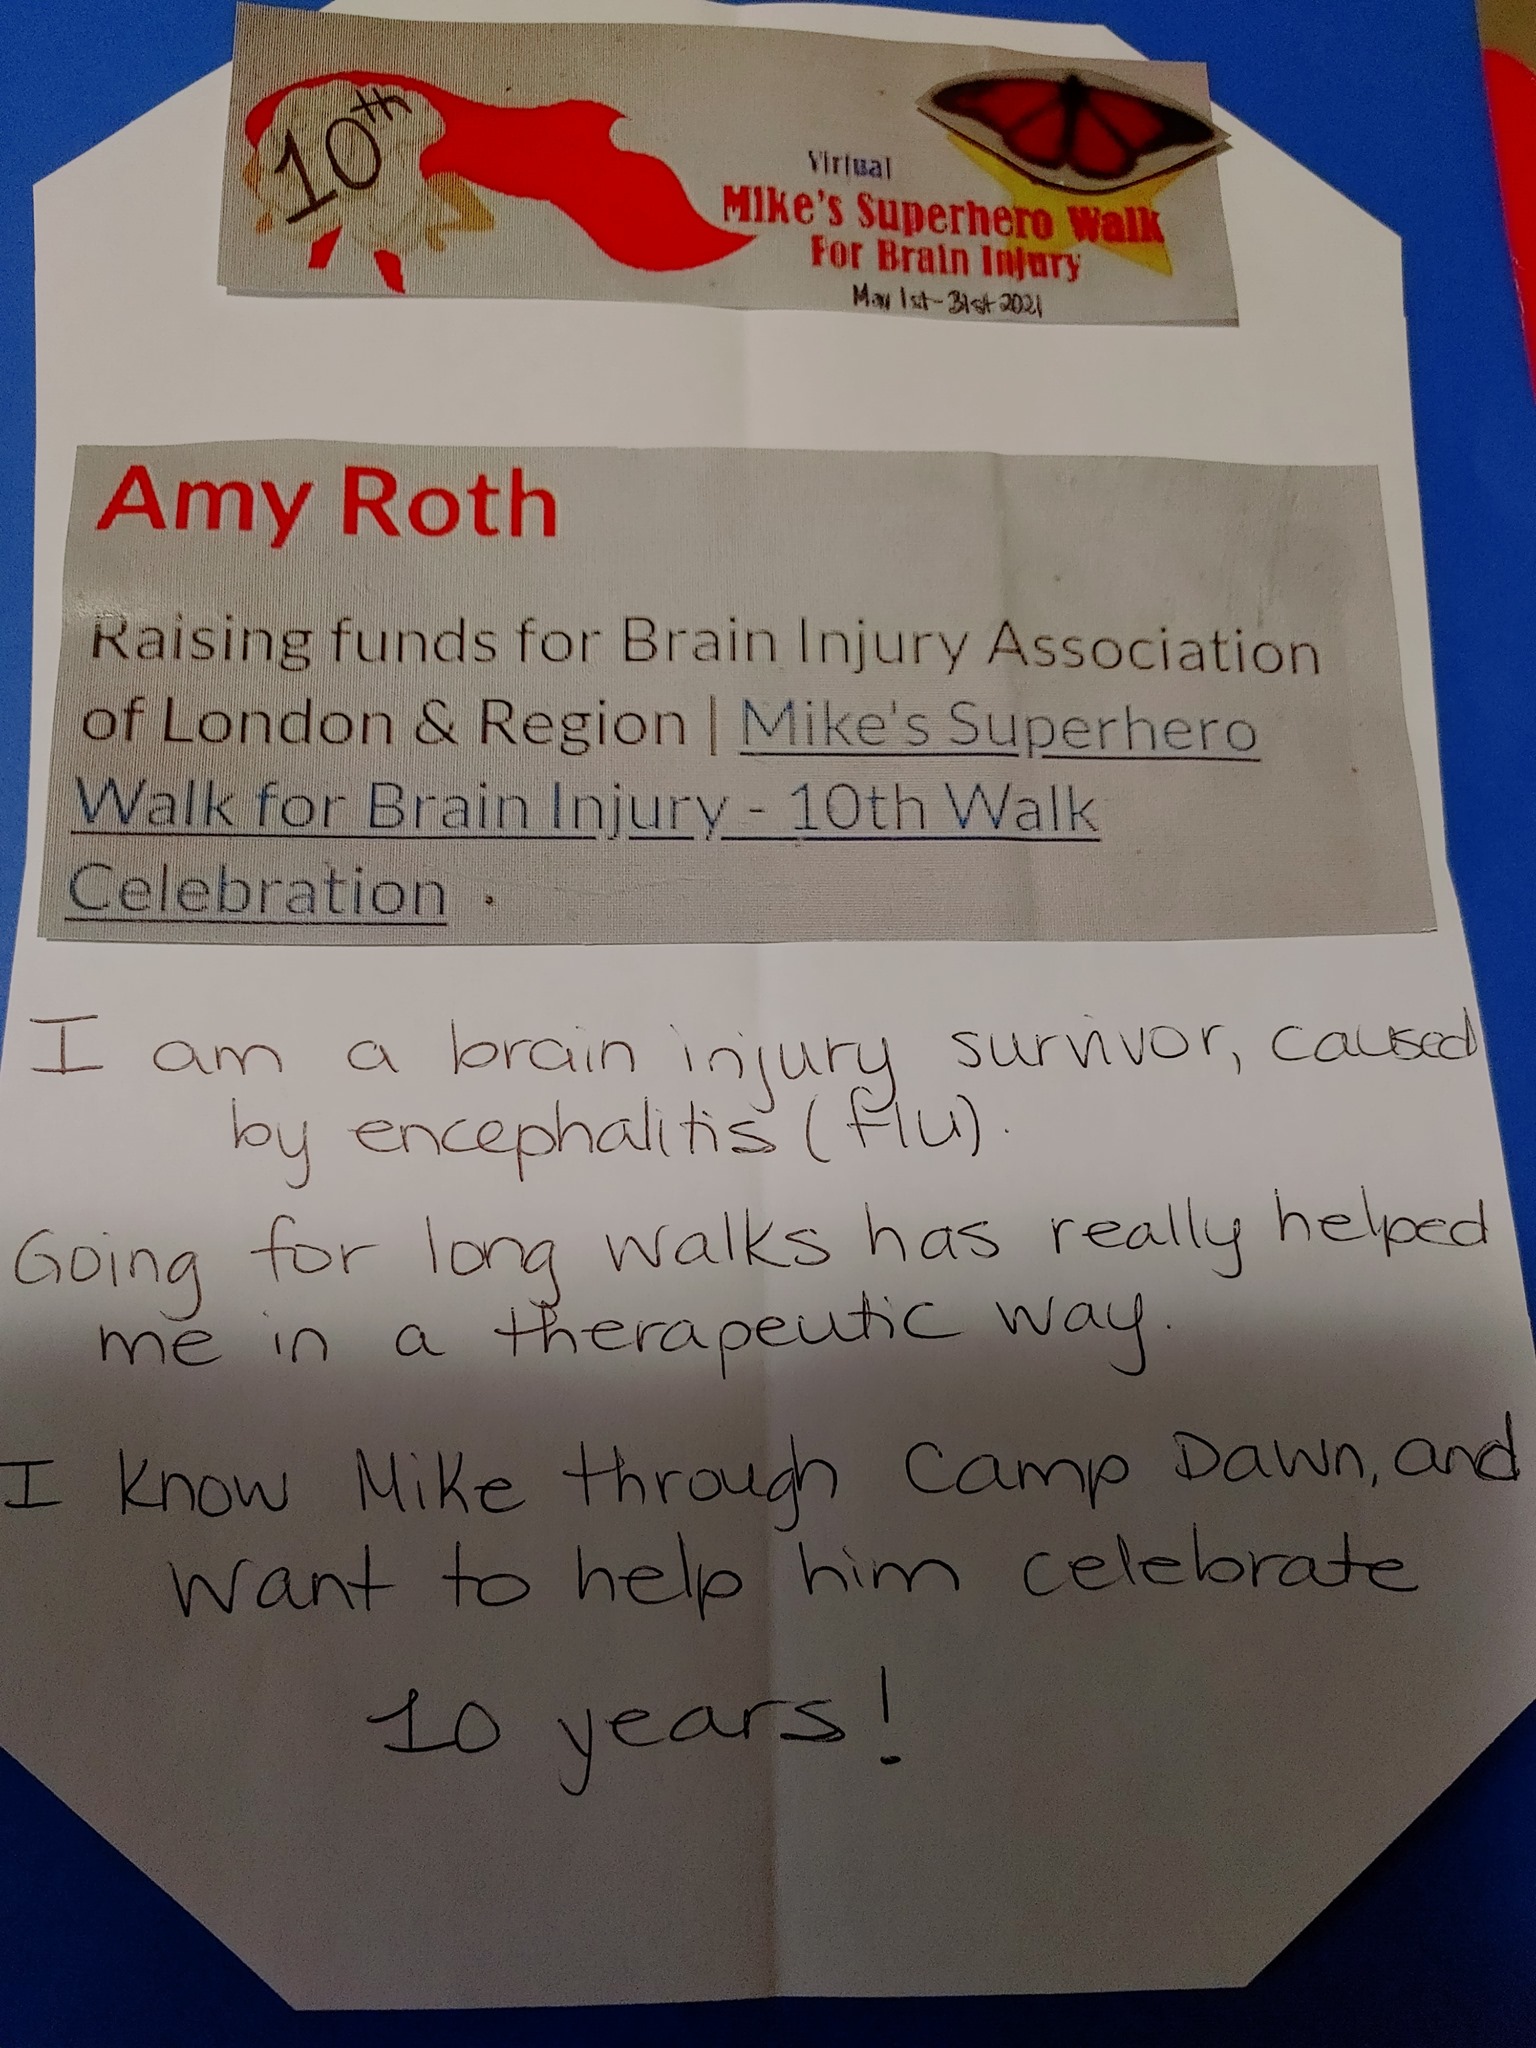 10th
Virtual
Mike's Superhero Walk
For Brain Injury
May 1st-31st 2021
Amy Roth
Raising funds for Brain Injury Association
of London & Region | Mike's Superhero
Walk for Brain Injury - 10th Walk
Celebration .
I am a brain injury survivor, caused
by encephalitis (flu).
Going for long walks has really helped
me in a therapeutic way.
I know Mike through Camp Dawn, and
want to help him celebrate
10 years!